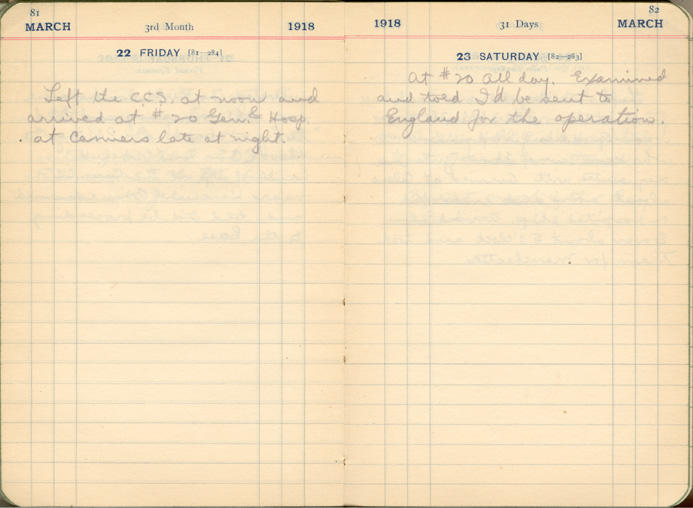 81
MARCH
3rd Month
1918
22 FRIDAY [81—284]
Left the C.C.S. at noon and
arrived at #20 Gen'l Hosp.
at Camiers late at night.
82
1918
31 Days
MARCH
23 SATURDAY [82—283]
At #20 all day. Examined
and told I'd be sent to
England for the operation.